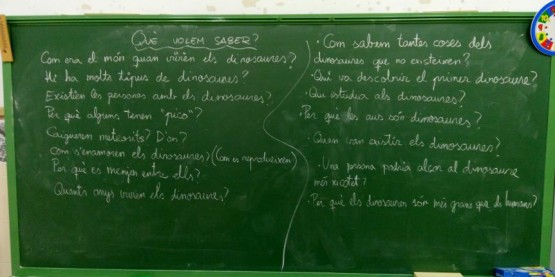 QUE VOLEM SABER?
Com era el món quan vivien els dinosaures?
Hi ha molts tipus de dinosaures?
Existien les persones amb els dinosaures?
Per què alguns tenen "pico"?
Caigueren meteorits? D'on?
Com s'enamoren els dinosaures? (Com es reprodueixen)
Per què es menjen entre ells?
Quants anys vivien els dinosaures?
· Com sabem tantes coses dels
dinosaures que no existeixen?
· Qui va descobrir el primer dinosaure?
· Qui estudia als dinosaures?
· Per què les aus són dinosaures?
· Quan van existir els dinosaures?
· Una persona podria alçar al dinosaure
més xicotet?
· Per què els dinosaures són més grans que els humans?